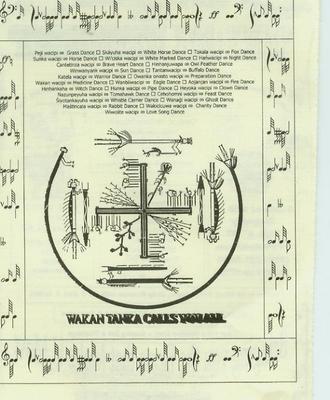 Peji wacipi = Grass Dance □ Sukyuha wacipi = White Horse Dance □ Tokala wacipi = Fox Dance
Sunka wacipi = Horse Dance □ Wi'oska wacipi = White Marked Dance □ Hanwacipi = Night Dance
Cantetinza wacipi = Brave Heart Dance □ Hinhansunwapa = Owl Feather Dance
Winwanyank wacipi = Sun Dance □ Tantanwacipi = Buffalo Dance
Katela wacipi = Warrior Dance □ Owanka onasto wacipi = Preparation Dance
Wakan wacipi = Medicine Dance □ Wanbliwacipi = Eagle Dance □ Aojanjan wacipi = Fire Dance
Hanhankaha = Witch Dance □ Hunka wacipi = Pipe Dance □ Heyoka wacipi = Clown Dance
Natunpeyuha wacipi = Tomahawk Dance □ Cehohomni wacipi = Feast Dance
Siyotankayuha wacipi = Whistle Carrier Dance □ Wanagi wacipi = Ghost Dance
Mastincala wacipi = Rabbit Dance □ Wakicicuwa wacipi = Charity Dance
Wiwoste wacipi = Love Song Dance
WAKAN TANKA CALLS YOU ALL